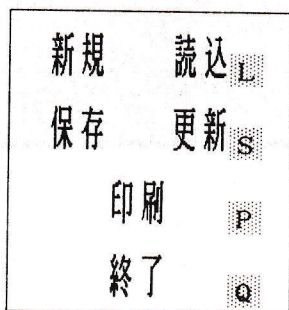 新規 読込 L
保存 更新 S
印刷 P
終了 Q